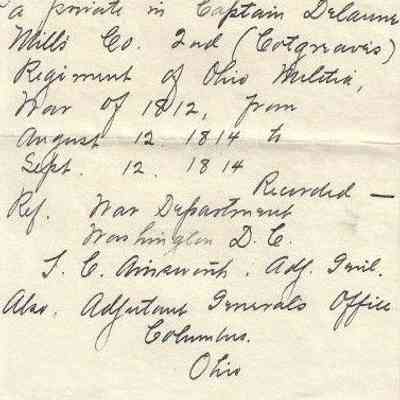 a private in Captain Delaune
Mills Co. 2nd (Cotgreaves)
Regiment of Ohio Militia,
War of 1812, from
August 12. 1814 to
Sept. 12. 1814
Recorded —
Ref. War Department
Washington D.C.
F. C. Ainsworth. Adj. Genl.
Also. Adjutant Generals Office
Columbus.
Ohio